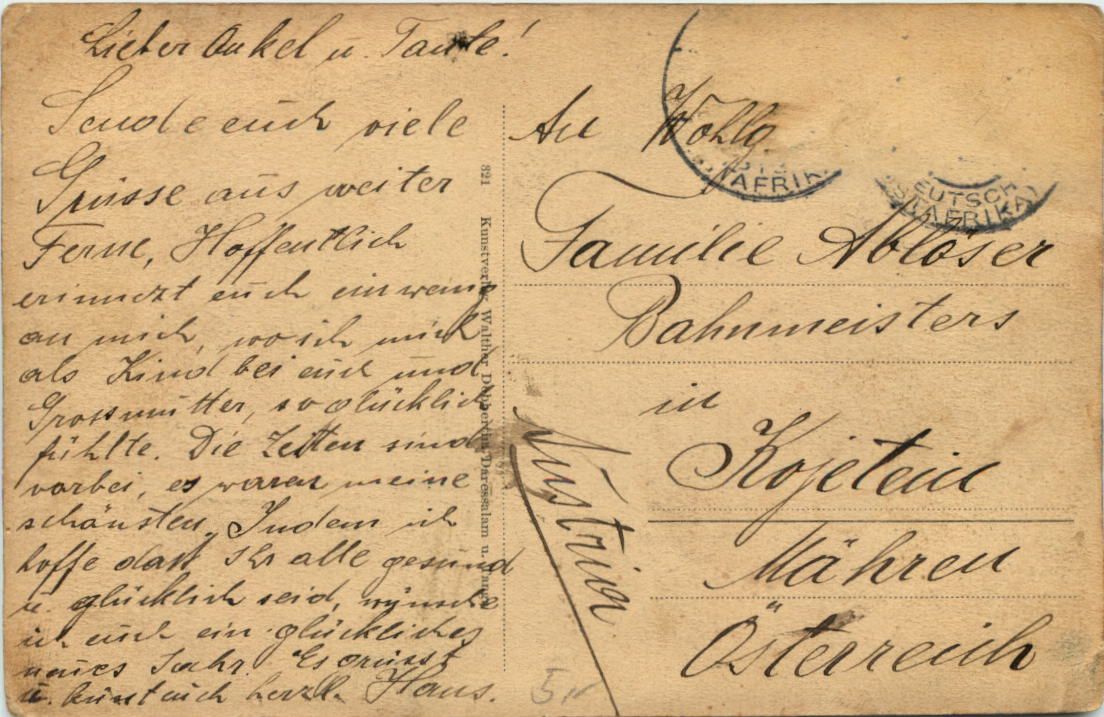 Lieber Onkel u. Tante!
Sende euch viele
Grüsse aus weiter
Ferne, Hoffentlich
erinnert euch ein wenig
an mich, wo ich mich
als Kind bei euch und
Grossmutter, so glücklich
fühlte. Die Zeiten sind
vorbei, es waren meine
schönsten. Indem ich
hoffe dass Ihr alle gesund
u. glücklich seid, wünsche
ich euch ein glückliches
neues Jahr. Es grüsst
u. küsst euch herzl. Hans.
821 Kunstverlag Walther Dobbertin, Daressalam u. Tanga
An Wohlg.
Familie Ablöser
Bahnmeisters
in
Kojetein
Mähren
Österreich
Austria
AFRIK
EUTSCH
AFRIKA
5